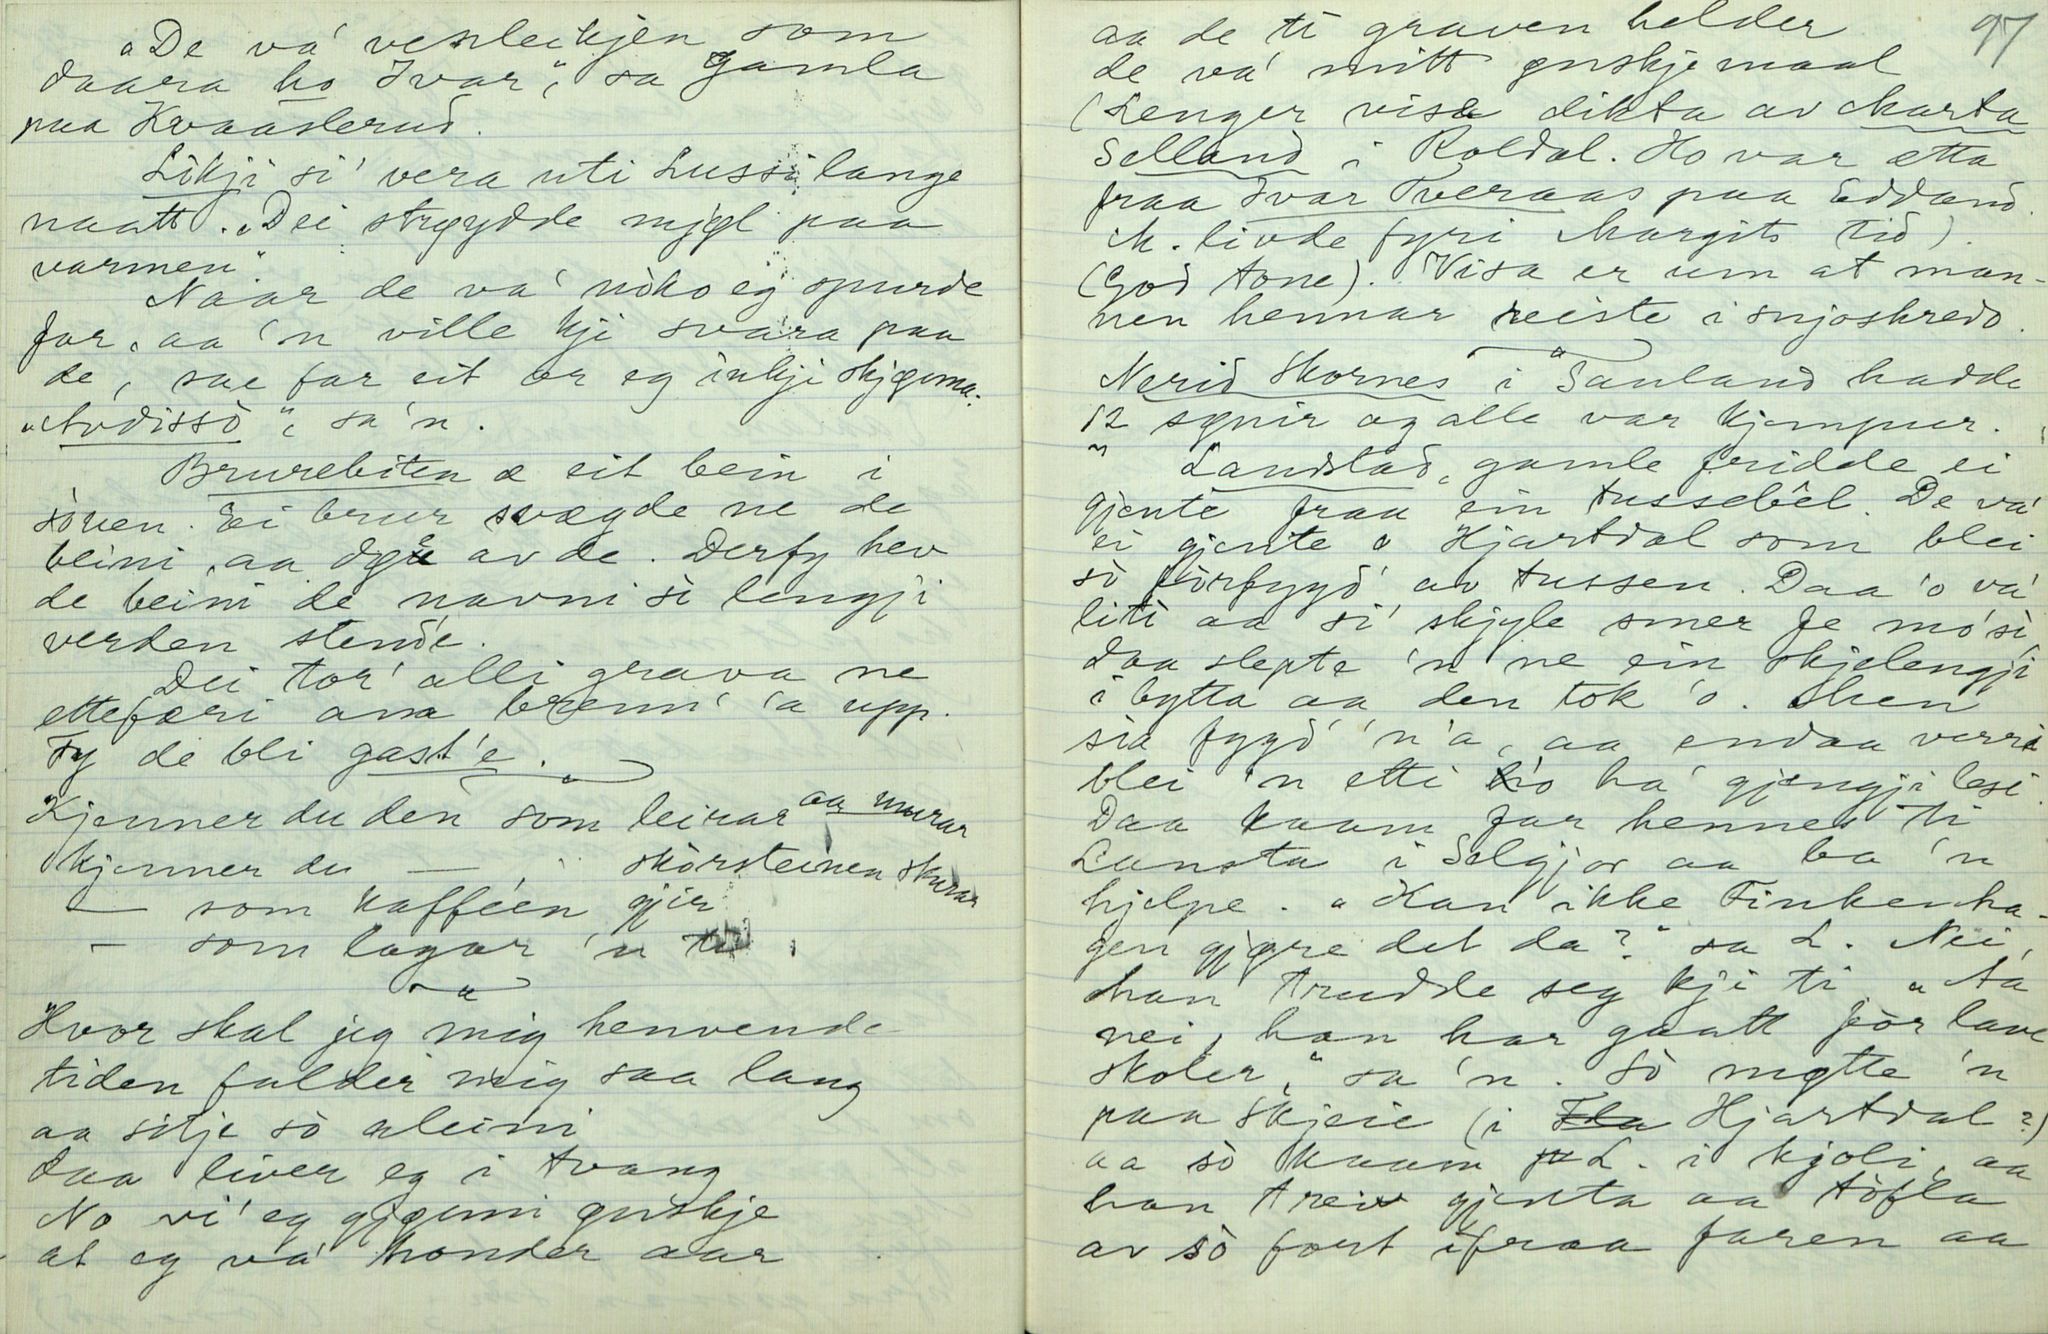 "De va' vesleikjen som
daara ho Ivar", sa Gamla
paa Kvaasterud.
Likji si' vera uti Lussi lange
naatt. "Dei strøydde mjøl paa
varmen".
Naar de va' nòko eg spurde
far, aa 'n ville kji svara paa
de, sae far eit or eg inkji skjøna:
"Avdissò", sa 'n.
Brurebiten æ eit bein i
sòuen. Ei brur svægde ne de
beini, aa døe av de. Derfy hev
de beini de navni sì lengji
verden stend'e.
Dei tor' alli grava ne
ettefæri ann brenn' 'a upp.
Fy de bli gast'e.
Kjenner du den som leirar aa murar
kjenner du — , skòrsteinen skurar
— som kafféen gjir
— som lagar 'n ti
Hvor skal jeg mig henvende
tiden falder mig saa lang
aa sitje sò aleini
daa liver eg i tvang
No vi' eg gjønni ynskje
at eg va' honder aar
97
aa de ti graven helder
de va' mitt ynskjemaal
(Lenger visa dikta av Marta
Selland i Roldal. Ho var ætta
fraa Ivar Tveraas paa Eddand.
M. livde fyri Margits tid).
(God tone). Visa er um at man-
nen hennar reiste i snjoskred.
Nerid Skornes i Sauland hadde
12 sønir og alle var kjempur.
Landstad, gamle fridde ei
gjente fraa ein tussebêl. De va'
ei gjente o Hjartdal som blei
sò fòrfygd' av tussen. Daa 'o va'
liti aa si' skjyle smer fe mo' si,
daa slepte 'n ne ein skjelengji
i bytta aa den tok 'o. Men
sia fygd' 'n 'a, aa endaa verri
blei 'n etti 'o ha' gjengji lesi.
Daa kaam far hennes ti
Lansta i Selgjor aa ba 'n
hjelpe. "Kan ikke Finkenha-
gen gjøre det da?" sa L. Nei,
han trudde seg kji ti. "Aa
nei, han har gaatt fòr lave
skoler," sa 'n. Sò møtte 'n
paa Skjeie (i Fla Hjartdal?)
aa sò kaam L. i kjoli, aa
han treiv gjenta aa tòfla
av sò fort ifraa faren aa